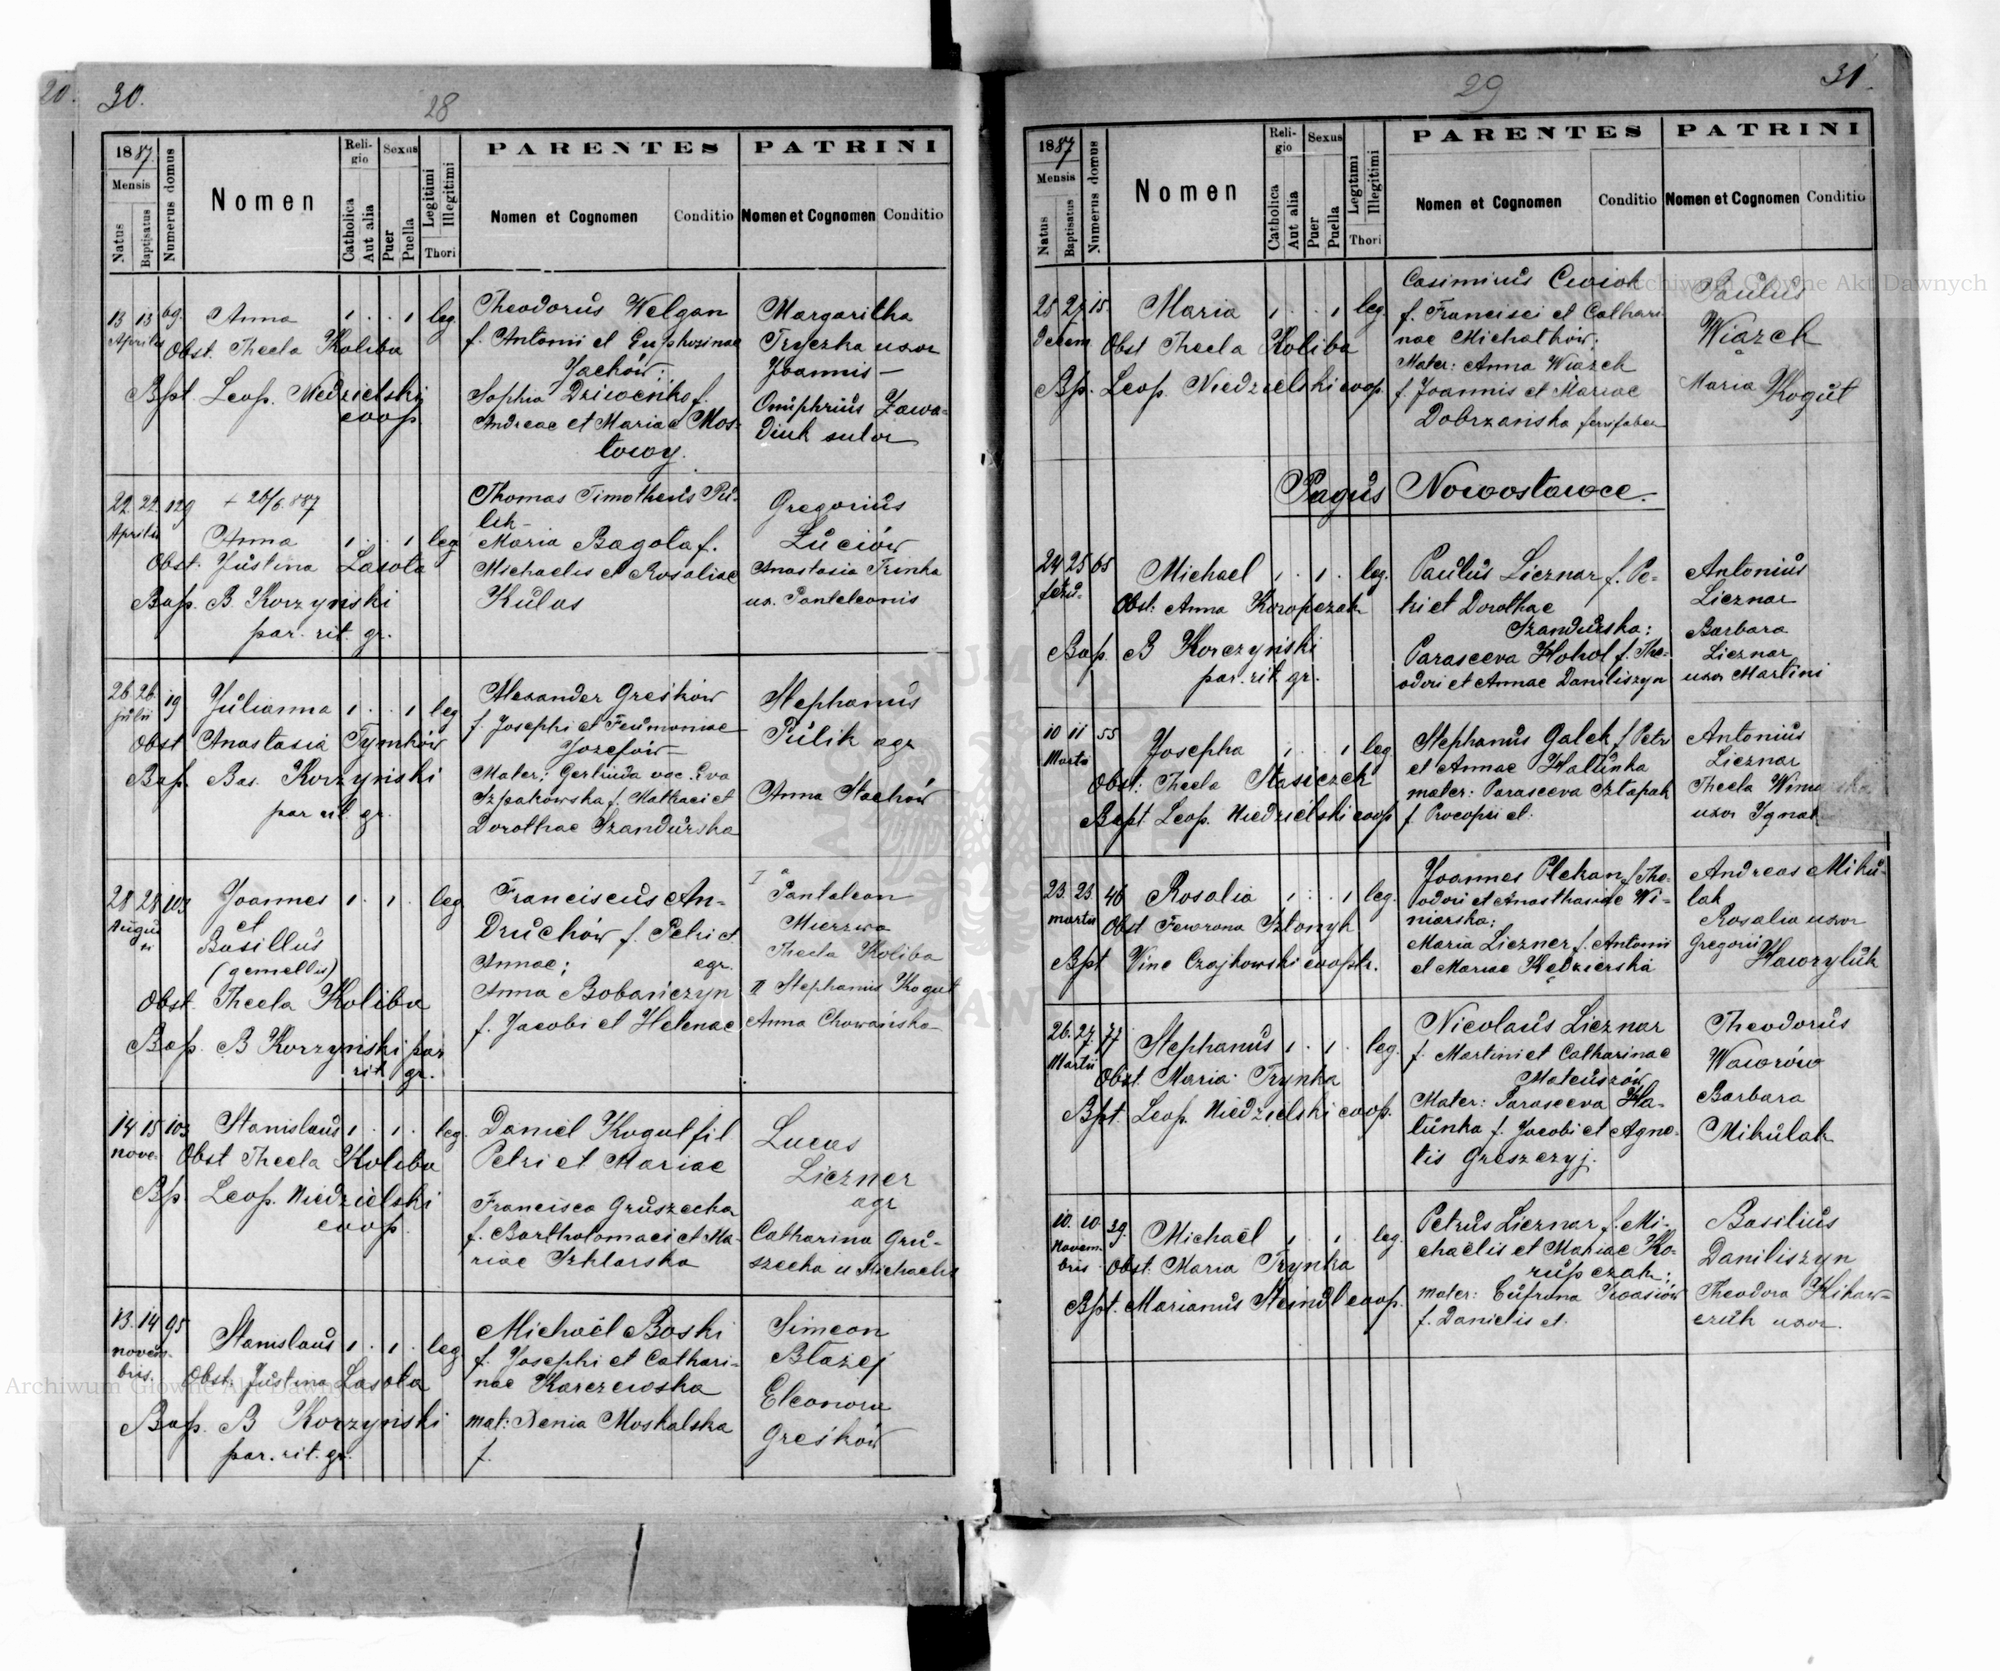 20.
30.
28
1887.
Mensis
Natus
Baptisatus
Numerus domus
Nomen
Religio
Catholica
Aut alia
Sexus
Puer
Puella
Legitimi
Illegitimi
Thori
PARENTES
Nomen et Cognomen
Conditio
PATRINI
Nomen et Cognomen
Conditio
13 13 69. Anna 1 . . 1 leg.
Aprilis
Obst. Thecla Koliba
Bpt. Leop. Niedzielski
coop.
Theodorus Welgan
f. Antonii et Euphrozinae
Jachów;
Sophia Dziwenko f.
Andreae et Mariae Mos-
towy.
Margaritha
Tryczka uxor
Joannis —
Onuphrius Zawa-
diuk sutor
22. 22. 129 + 26/6. 887
Aprilis
Anna 1 . . 1 leg
Obst. Justina Lasota
Bap. B. Korzyński
par. rit. gr.
Thomas Timotheus Pu-
lik —
Maria Bagota f.
Michaelis et Rosaliae
Kulas
Gregorius
Luciów
Anastasia Trinka
ux. Panteleonis
26. 26. 19 Julianna 1 . . 1 leg
Julii
Obst Anastasia Tymków
Bap. Bas. Korzyński
par rit gr.
Alexander Greśków
f. Josephi et Feumoniae
Jozefów
Mater: Gertruda voc. Eva
Szpakowska f. Mathaei et
Dorothae Szandurska
Stephanus
Pulik agr
Anna Stachów
28 28 103 Joannes 1 . 1 . leg
Augusti
et
Basillus
(gemelli)
Obst. Thecla Koliba
Bap. B Korzyński par
rit. gr.
Franciscus An-
druchów f. Petri et
Annae; agr.
Anna Bobańczyn
f. Jacobi et Helenae
I Pantaleon
Mierzwa
Thecla Koliba
II Stephanus Kogut
Anna Chowańska
14 15 103 Stanislaus 1 . 1 . leg.
nove.
Obst Thecla Koliba
Bp. Leop. Niedzielski
coop.
Daniel Kogut fil
Petri et Mariae
Francisca Gruszecka
f. Bartholomaei et Ma-
riae Szklarska
Lucas
Liczner
agr
Catharina Gru-
szecka u Michaelis
13. 14 95 Stanislaus 1 . 1 . leg
novem-
bris.
Obst. Justina Lasota
Bap. B Korzyński
par. rit. gr.
Michaël Boski
f. Josephi et Cathari-
nae Karczewska
mat: Xenia Moskalska
f.
Simeon
Błażej
Eleonora
Greśków
29
31.
1887
Mensis
Natus
Baptisatus
Numerus domus
Nomen
Religio
Catholica
Aut alia
Sexus
Puer
Puella
Legitimi
Illegitimi
Thori
PARENTES
Nomen et Cognomen
Conditio
PATRINI
Nomen et Cognomen
Conditio
25 27 15. Maria 1 . . 1 leg.
Decem
Obst Thecla Koliba
Bp. Leop. Niedzielski coop.
Casimirus Cwiok
f. Francisci et Cathari
nae Michałków;
Mater: Anna Wiązek
f. Joannis et Mariae
Dobrzańska
Paulus
Wiązek
Maria Kogut
Pagus Nowostawce.
24 25 65 Michael 1 . 1 . leg.
febr.
Obst: Anna Koropczak
Bap. B Korczyński
par. rit gr.
Paulus Licznar f. Pe-
tri et Dorothae
Szandurska:
Parasceva Hohol f. The-
odori et Annae Daniliszyn
Antonius
Licznar
Barbara
Licznar
uxor Martini
10 11 55 Josepha 1 . . 1 leg
Martii
Obst: Thecla Stasiczek
Bapt Leop. Niedzielski coop
Stephanus Galek f Petri
et Annae Hałunka
mater: Parasceva Sztapak
f. Procopii et.
Antonius
Licznar
Thecla
uxor
23. 23. 46 Rosalia 1 . . 1 leg.
martii
Obst Fewrona Sztonyk
Bpt Vinc Czajkowski cooptr.
Joannes Plekan f. The-
odori et Anasthasiae Wi-
niarska;
Maria Liczner f. Antonii
et Mariae Kędzierska
Andreas Miku-
lak
Rosalia uxor
Gregorii
Hawryluk
26. 27 77 Stephanus 1 . 1 . leg.
Martii
Obst Maria Trynka
Bpt Leop. Niedzielski coop.
Nicolaus Licznar
f. Martini et Catharinae
Mateuszów
Mater: Parasceva Ha-
lunka f. Jacobi et Agne-
tis Greszczyj.
Theodorus
Wawrów
Barbara
Mikulak
10. 10 39. Michaël 1 . 1 . leg
Novem-
bris
Obst. Maria Trynka
Bpt. Marianus Steindl coop.
Petrus Licznar f. Mi-
chaëlis et Mariae Ko-
rupczak;
mater: Eufruna Kwasiów
f. Danielis et.
Basilius
Daniliszyn
Theodora
uxor.
Archiwum Główne Akt Dawnych
Archiwum Główne Akt Dawnych